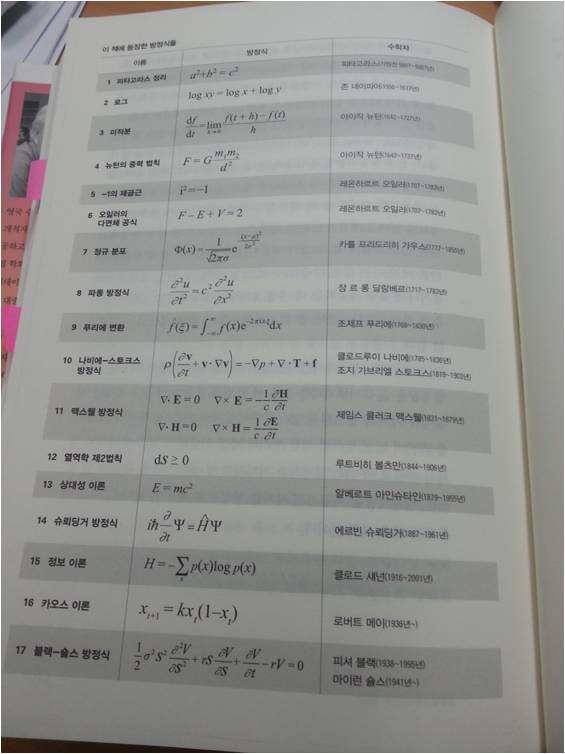 이 책에 등장한 방정식들
이름 방정식 수학자
1 피타고라스 정리 a²+b² = c² 피타고라스
2 로그 log xy = log x + log y 존 네이피어(1550~1617년)
3 미적분 df/dt = lim h→0 f(t + h) − f(t)/h 아이작 뉴턴(1642~1727년)
4 뉴턴의 중력 법칙 F = G m₁m₂/d² 아이작 뉴턴(1642~1727년)
5 −1의 제곱근 i² = −1 레온하르트 오일러(1707~1783년)
6 오일러의 다면체 공식 F − E + V = 2 레온하르트 오일러(1707~1783년)
7 정규 분포 Φ(x) = 1/√2πσ e 카를 프리드리히 가우스(1777~1855년)
8 파동 방정식 ∂²u/∂t² = c² ∂²u/∂x² 장 르 롱 달랑베르(1717~1783년)
9 푸리에 변환 f̂(ξ) = ∫−∞^∞ f(x)e^−2πixξ dx 조제프 푸리에(1768~1830년)
10 나비에−스토크스 방정식 ρ(∂v/∂t + v · ∇v) = −∇p + ∇ · T + f 클로드루이 나비에(1785~1836년)
조지 가브리엘 스토크스(1819~1903년)
11 맥스웰 방정식 ∇· E = 0 ∇× E = −1/c ∂H/∂t 제임스 클러크 맥스웰(1831~1879년)
∇· H = 0 ∇× H = 1/c ∂E/∂t
12 열역학 제2법칙 dS ≥ 0 루트비히 볼츠만(1844~1906년)
13 상대성 이론 E = mc² 알베르트 아인슈타인(1879~1955년)
14 슈뢰딩거 방정식 iħ ∂/∂t Ψ = ĤΨ 에르빈 슈뢰딩거(1887~1961년)
15 정보 이론 H = −∑x p(x) log p(x) 클로드 섀넌(1916~2001년)
16 카오스 이론 xₜ₊₁ = kxₜ(1−xₜ) 로버트 메이(1936년~)
17 블랙−숄스 방정식 1/2 σ²S² ∂²V/∂S² + rS ∂V/∂S + ∂V/∂t − rV = 0 피셔 블랙(1938~1995년)
마이런 숄스(1941년~)